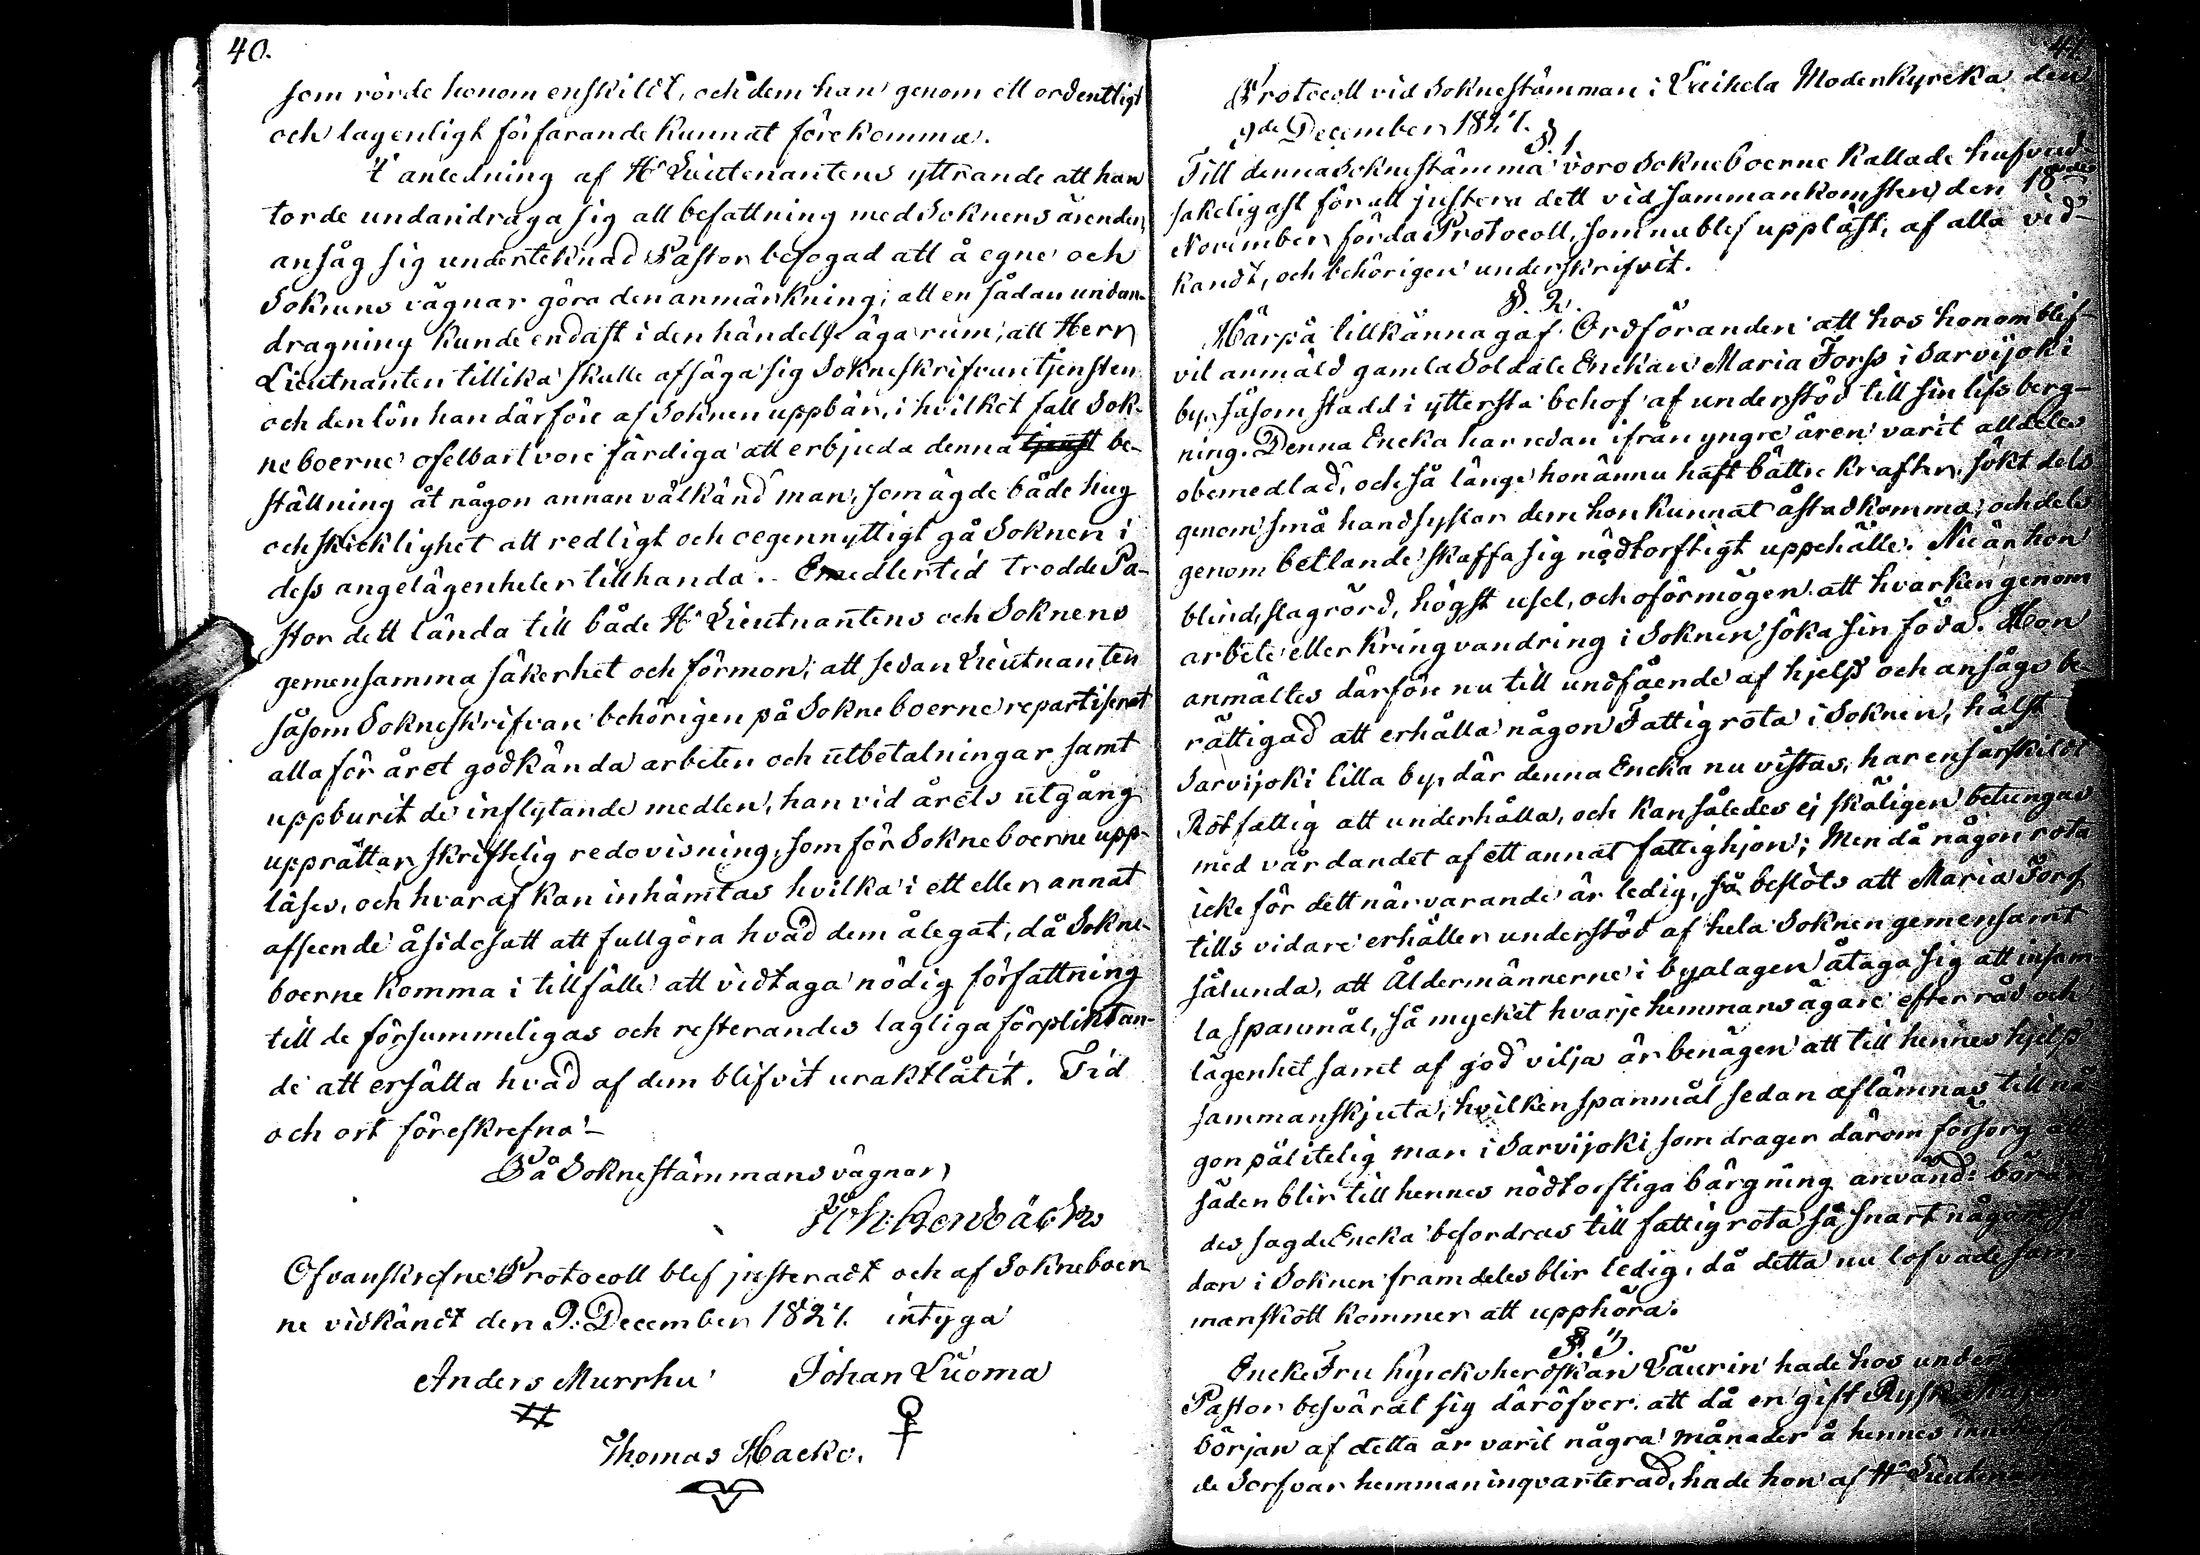 40.
som rörde honom enskildt, och dem han genom ett ordentligt
och lagenligt förfarande kunnat förekomma.
I anledning af Hr Lieutenantens yttrande att han
torde undandraga sig all befattning med Soknens ärenden,
ansåg sig undertecknad Pastor befogad att å egne och
Soknens vägnar göra den anmärkning; att en sådan undan-
dragning kunde endast i den händelse äga rum, att Herr
Lieutnanten tillika skulle afsäga sig Sokneskrifvaretjensten
och den lön han därföre af Soknen uppbär, i hvilket fall Sok-
neboerne ofelbart vore färdiga att erbjuda denna tjenst be-
ställning åt någon annan välkänd man, som ägde både hug
och skicklighet att redligt och oegennyttigt gå Soknen i
dess angelägenheter tillhanda. Emedlertid trodde Pa-
stor dett lända till både Hr Lieutnantens och Soknens
gemensamma säkerhet och förmon; att sedan Lieutnanten
såsom Sokneskrifvare behörigen på Sokneboerne repartiserat
alla för året godkända arbeten och utbetalningar samt
uppburit de inflytande medlen, han vid årets utgång
upprättar skriftelig redovisning, som för Sokneboerne upp-
läses, och hvaraf kan inhämtas hvilka i ett eller annat
afseende åsidosatt att fullgöra hvad dem ålegat, då Sokne-
boerne komma i tillfälle att vidtaga nödig författning
till de försummeligas och resterandes lagliga förpliktan-
de att ersätta hvad af dem blifvit uraktlåtit. Tid
och ort föreskrefna.
På Soknestämmans vägnar
Joh: Benbäck
Ofvanskrefne Protocoll blef justeradt och af Sokneboer-
ne vidkändt den 9. December 1821. intyga
Anders Murrhu Johan Luoma
Thomas Hacko.
41.
Protocoll vid Soknestämman i Laihela Moderkyrcka den
9de December 1821.
§. 1
Till denna Soknestämma voro Sokneboerne kallade hufvud-
sakeligast för att justera dett vid sammankomsten den 18
November förda Protocoll, som nu blef uppläst, af alla vid-
kändt, och behörigen underskrifvit.
§. 2.
Härpå tillkännagaf Ordföranden att hos honom blif-
vit anmäld gamla Soldate Enckan Maria Forss i Sarvijoki
by, såsom stadd i yttersta behof af understöd till sin lifsberg-
ning. Denna Encka har redan ifrån yngre åren varit alldeles
obemedlad, och så länge hon ännu haft bättre krafter, sökt dels
genom små handsyslor dem hon kunnat åstadkomma, och dels
genom betlande skaffa sig nödtorftigt uppehälle. Nu är hon
blind, slagrörd, högst usel, och oförmögen att hvarken genom
arbete eller kringvandring i Soknen söka sin föda. Hon
anmältes därföre nu till undfående af hjelp och ansågs be-
rättigad att erhålla någon Fattigrota i Soknen, hälst
Sarvijoki lilla by, där denna Encka nu vistas, har en särskildt
Rotfattig att underhålla, och kan således ej skäligen betungas
med vårdandet af ett annat fattighjon; Men då någon rota
icke för dett närvarande är ledig, så beslöts att Maria Forss
tills vidare erhåller understöd af hela Soknen gemensamt
sålunda, att Åldermännerne i byalagen åtaga sig att insam-
la spanmål, så mycket hvarje hemmansägare efter råd och
lägenhet samt af god vilja är benägen att till hennes hjelp
sammanskjuta, hvilken spanmål sedan aflämnas till nå-
gon pålitelig man i Sarvijoki som drager därom försorg att
säden blir till hennes nödtorftiga bärgning använd: böran-
des sagde Encka befordras till fattigrota så snart någon så-
dan i Soknen framdeles blir ledig, då detta nu lofvade sam-
manskott kommer att upphöra.
§. 3.
Encke Fru Kyrckoherdskan Laurin hade hos
Pastor besvärat sig däröfver att då en gift Rysk
början af detta år varit några månader å hennes
de Sorfvar hemman inqvarterad, hade hon af Hr